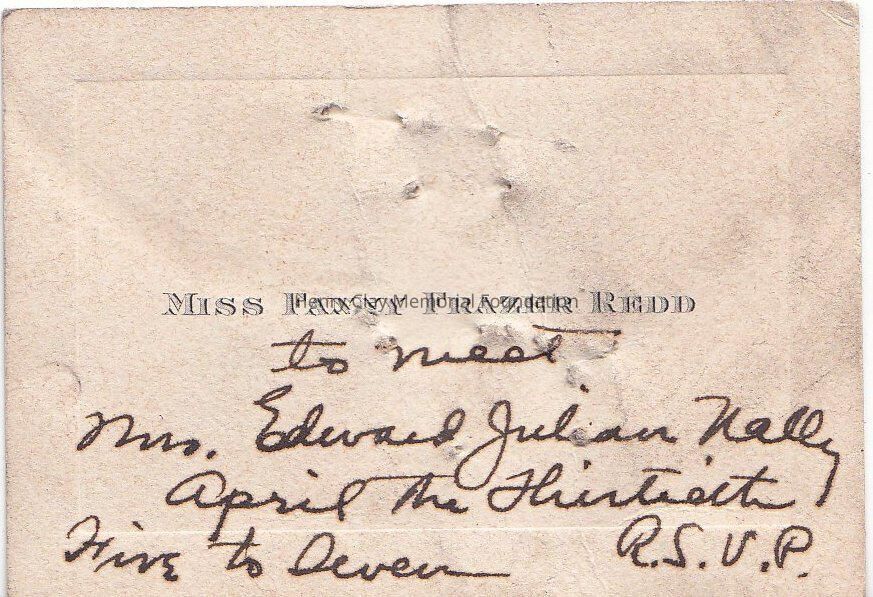 Miss Fanny Frazer Redd
Henry Clay Memorial Foundation
to meet
Mrs. Edward Julian Nally
April the Thirtieth
Five to Seven R.S.V.P.